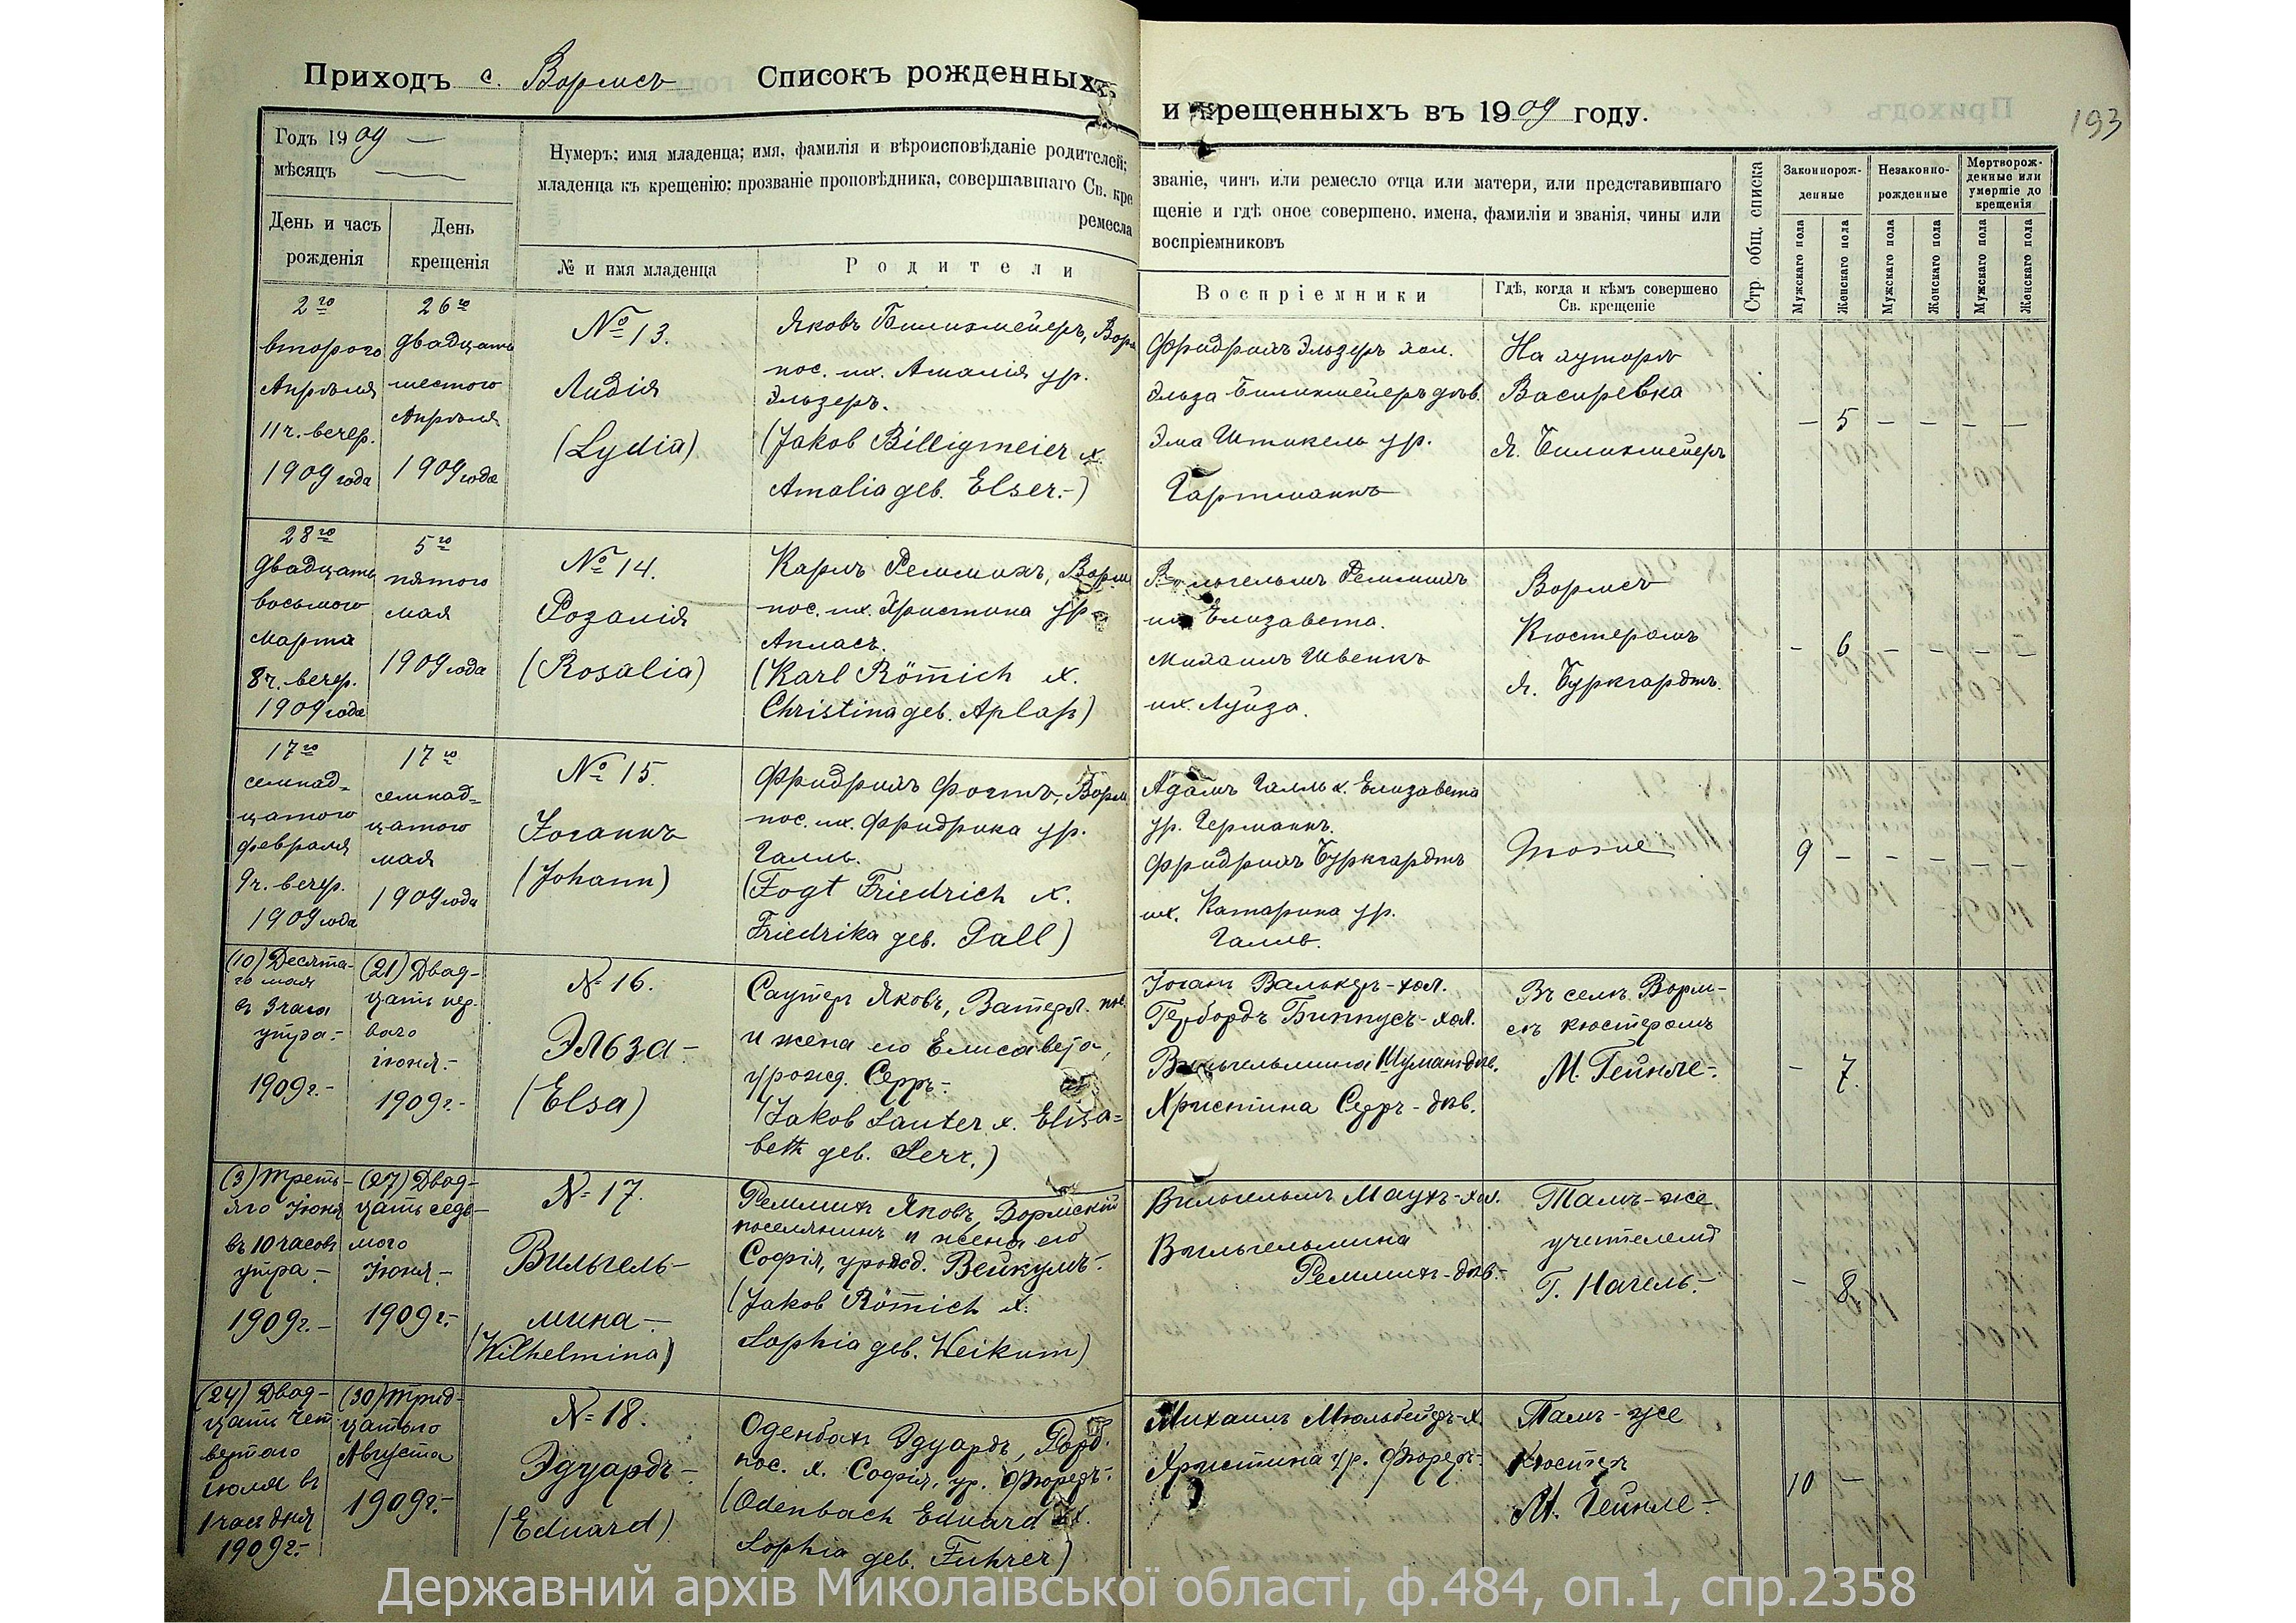 Приходъ с. Вормсъ Списокъ рожденныхъ
и крещенныхъ въ 1909 году.
193
Годъ 1909 —
мѣсяцъ —
Нумеръ; имя младенца; имя, фамилія и вѣроисповѣданіе родителей;
младенца къ крещенію; прозваніе проповѣдника, совершавшаго Св. кре
ремесла
День и часъ
рожденія
День
крещенія
№ и имя младенца
Родители
званіе, чинъ или ремесло отца или матери, или представившаго
щеніе и гдѣ оное совершено, имена, фамиліи и званія, чины или
воспріемниковъ
Воспріемники
Гдѣ, когда и кѣмъ совершено
Св. крещеніе
Стр. общ. списка
Законнорож-
денные
Незаконно-
рожденные
Мертворож-
денные или
умершіе до
крещенія
Мужскаго пола
Женскаго пола
Мужскаго пола
Женскаго пола
Мужскаго пола
Женскаго пола
2го
второго
Апрѣля
11 ч. вечер.
1909 года
26го
двадцать
шестого
Апрѣля
1909 года
№ 13.
Лидія
(Lydia)
Яковъ Билигмейеръ, Ворм
пос. их. Амалія ур.
Эльзеръ.
(Jakob Billigmeier x.
Amalia geb. Elser.-)
Фридрихъ Эльзеръ хол.
Эльза Билигмейеръ дѣв.
Эма Штикель ур.
Гартманнъ
На хуторѣ
Я. Билигмейеръ
— 5 — — — —
28го
двадцать
восьмого
марта
8 ч. вечер.
1909 года
5го
пятого
мая
1909 года
№ 14.
Розалія
(Rosalia)
Карлъ Реммихъ, Ворм
пос. их. Христина ур.
Апласъ.
(Karl Römich x.
Christina geb. Aplaß)
Вильгельмъ Реммихъ
их Елизавета.
Михаилъ Швенкъ
их. Луиза.
Вормсъ
Кюстеромъ
Я. Буркгардтъ.
— 6 — — — —
17го
семнад-
цатого
февраля
9 ч. вечер.
1909 года
17го
семнад-
цатого
мая
1909 года
№ 15.
Іоганнъ
(Johann)
Фридрихъ Фогтъ, Ворм
пос. их. Фридрика ур.
Галль.
(Fogt Friedrich x.
Friedrika geb. Gall)
Адамъ Галль х. Елизавета
ур. Германнъ.
Фридрихъ Буркгардтъ
их. Катарина ур.
Галль.
9 — — — — —
(10) Десята-
го мая
въ 3 часа
утра.-
1909г.-
(21) Двад-
цать пер-
ваго
іюня.-
1909г.-
№ 16.
Эльза.-
(Elsa)
Саутеръ Яковъ, Ватерл. пос.
и жена его Елисавета,
урожд. Серръ.-
(Jakob Sauter x. Elisa-
beth geb. Serr.)
Іоганъ Валькеръ-хол.
Гербордъ Биппусъ-хол.
Вильгельмина Шуманъ дѣв.
Христина Серръ-дѣв.
Въ селѣ Ворм-
съ кюстеромъ
М. Гейнле.-
— 7.
(3) Треть-
яго Іюня
въ 10 часовъ
утра.-
1909г.-
(27) Двад-
цать седь-
мого
Іюня.-
1909г.-
№ 17.
Вильгель-
мина.-
(Wilhelmina)
Реммихъ Яковъ, Вормскій
поселянинъ и жена его
Софія, урожд. Вейкумъ.-
(Jakob Römich x.
Sophia geb. Weikum)
Вильгельмъ Маухъ-хол.
Вильгельмина
Реммихъ-дѣв.-
Тамъ-же
учителемъ
Г. Нагель.-
— 8.
(24) Двад-
цать чет
вертаго
іюля въ
1 часъ дня
1909г.-
(30) Трид-
цатаго
Августа
1909г.-
№ 18.
Эдуардъ-
(Eduard)
Оденбахъ Эдуардъ,
пос. х. Софія, ур. Фюреръ.-
(Odenbach Eduard x.
Sophia geb. Fuhrer)
Михаилъ Мюльбейеръ-х.
Христина ур. Фюреръ-
Тамъ-же
Кюстеръ
М. Гейнле-
10 —
Державний архів Миколаївської області, ф.484, оп.1, спр.2358